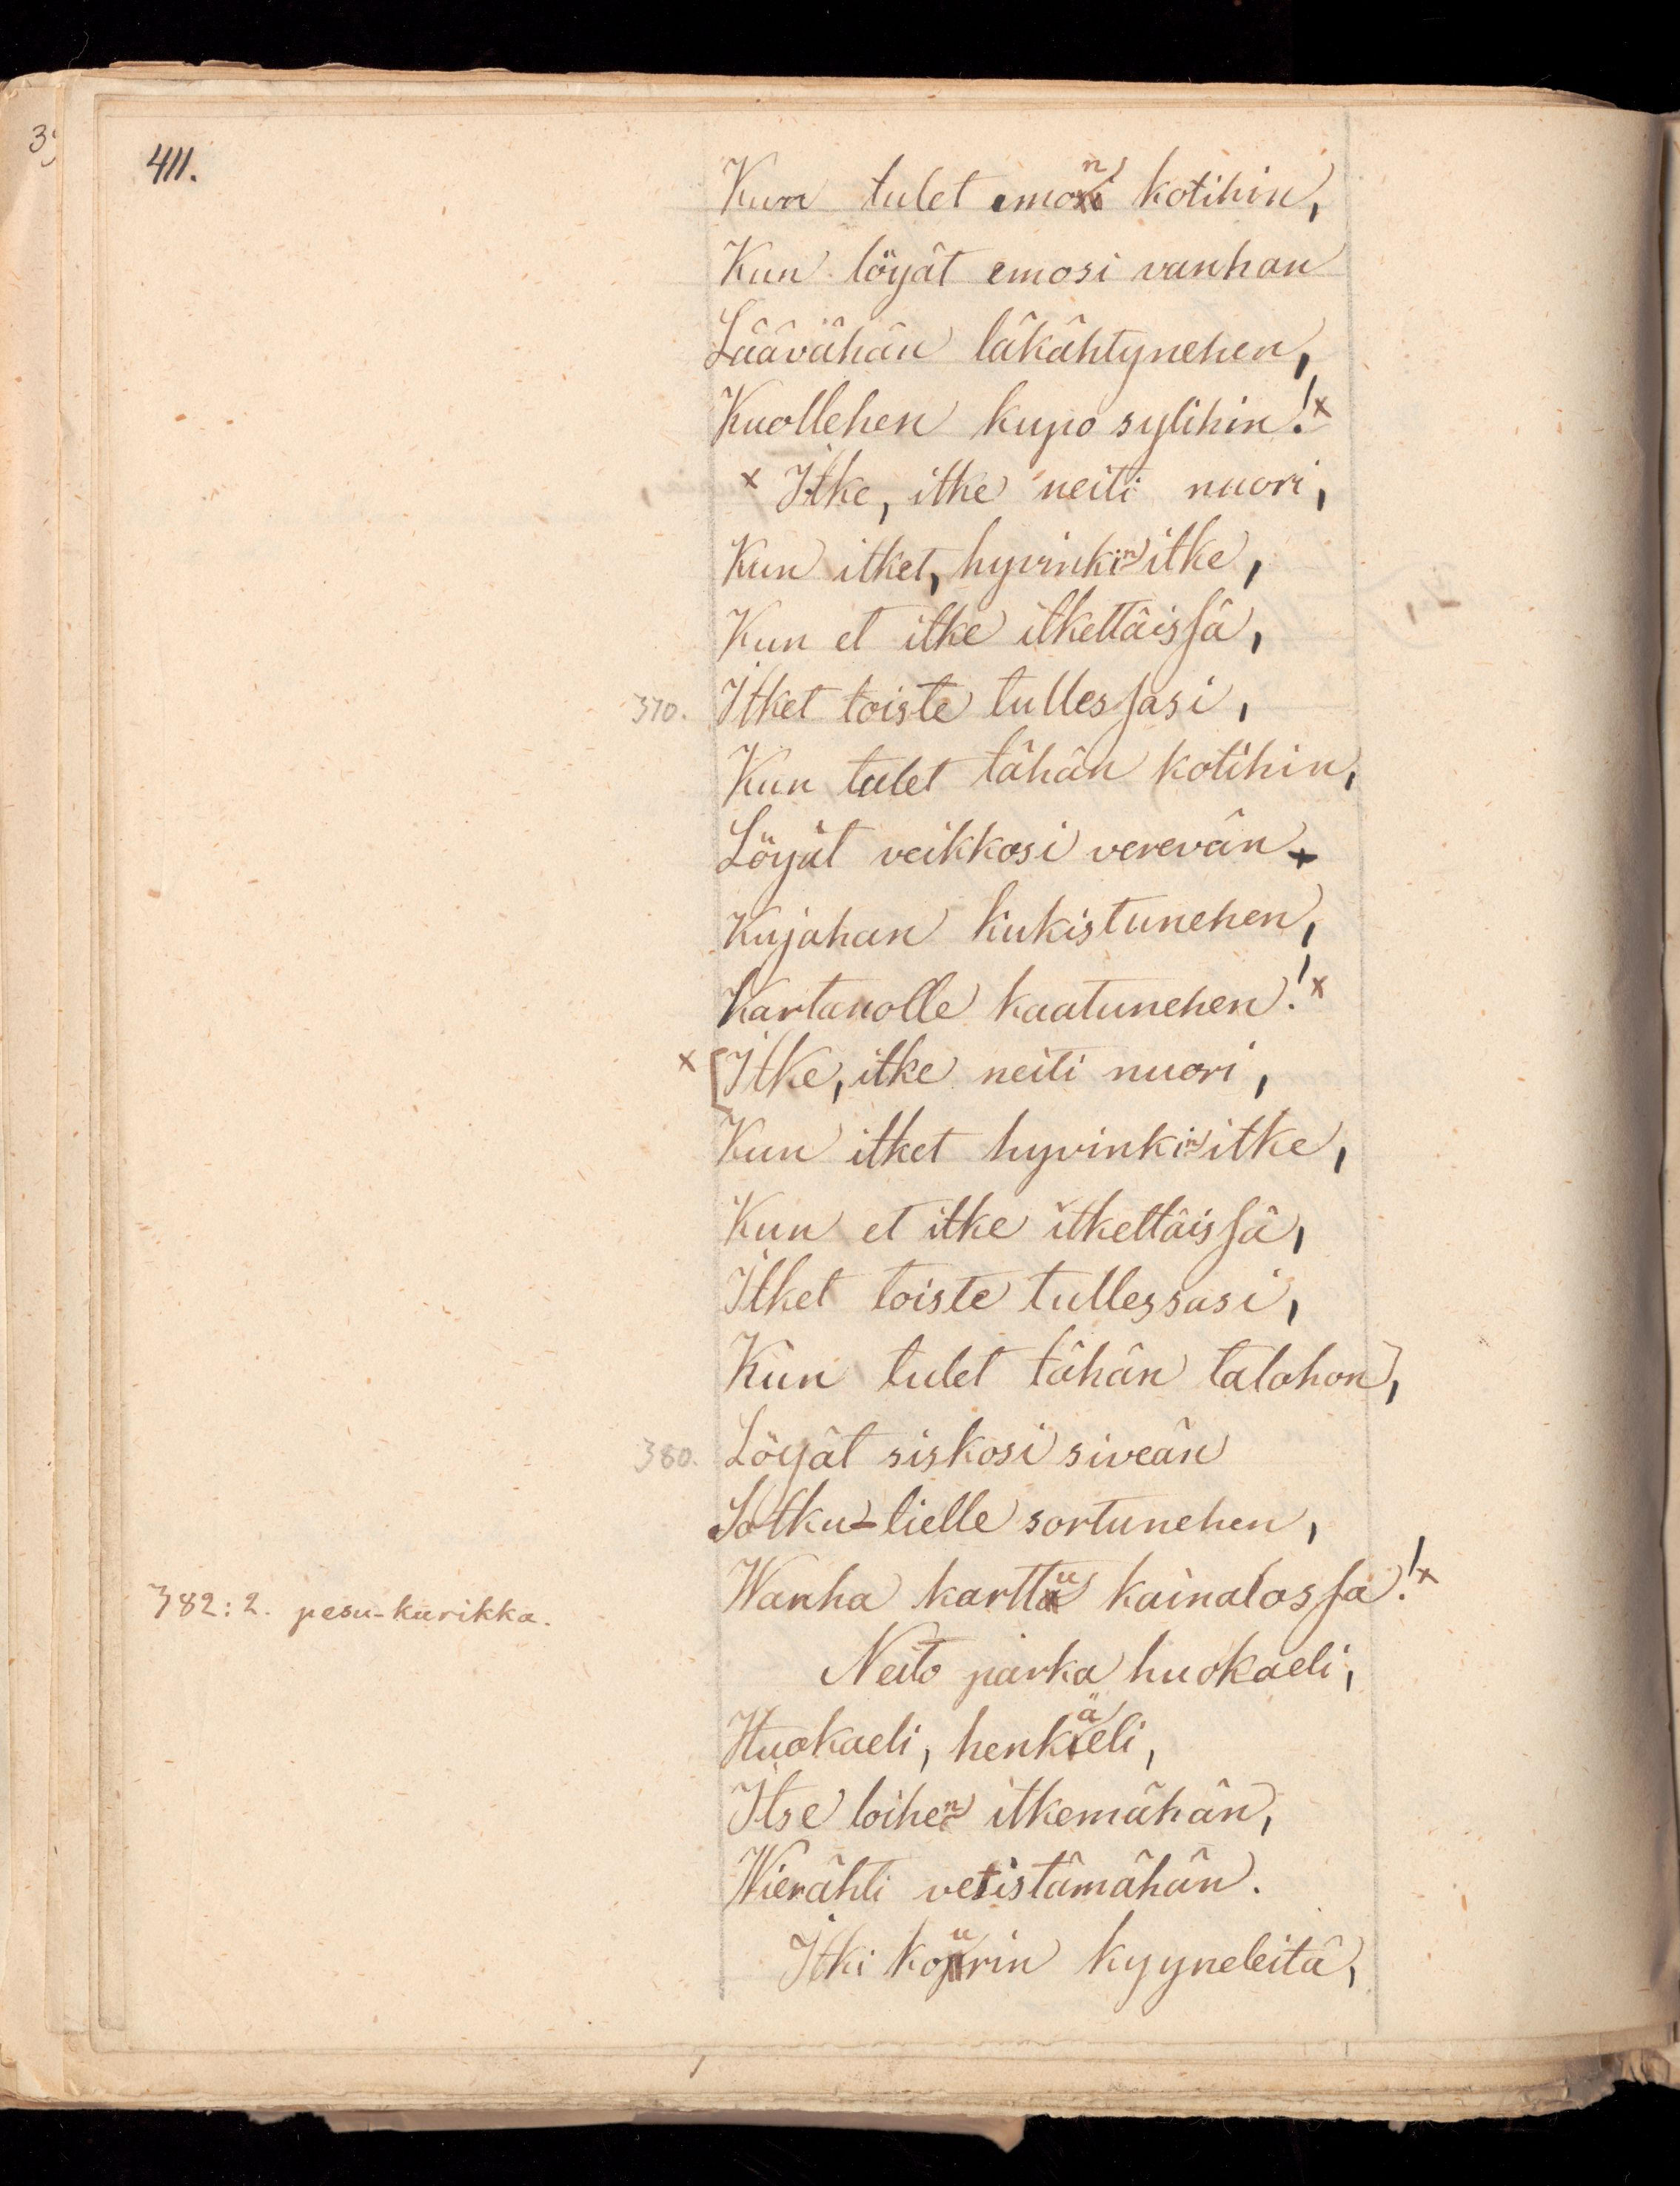 411.
Kun tulet emon kotihin,
Kun löyät emosi vanhan
Läävähän läkähtynehen,
Kuollehen kupo sylihin!x
x Itke, itke neiti nuori,
Kun itket, hyvinkin itke,
Kun et itke itkettäissä,
370. Itket toiste tullessasi,
Kun tulet tähän kotihin,
Löyät veikkosi verevän
Kujahan kukistunehen,
Kartanolle kaatunehen!x
x [Itke, itke neiti nuori,
Kun itket hyvinkin itke,
Kun et itke itkettäissä,
Itket toiste tullessasi,
Kun tulet tähän talohon,
380. Löyät siskosi siveän
Sotku-tielle sortunehen,
382:2. pesu-kurikka. Wanha karttu kainalossa!x
Neito parka huokaeli,
Huokaeli, henkäeli,
Itse loihen itkemähän,
Wierähti vetistämähän.
Itki kourin kyyneleitä,